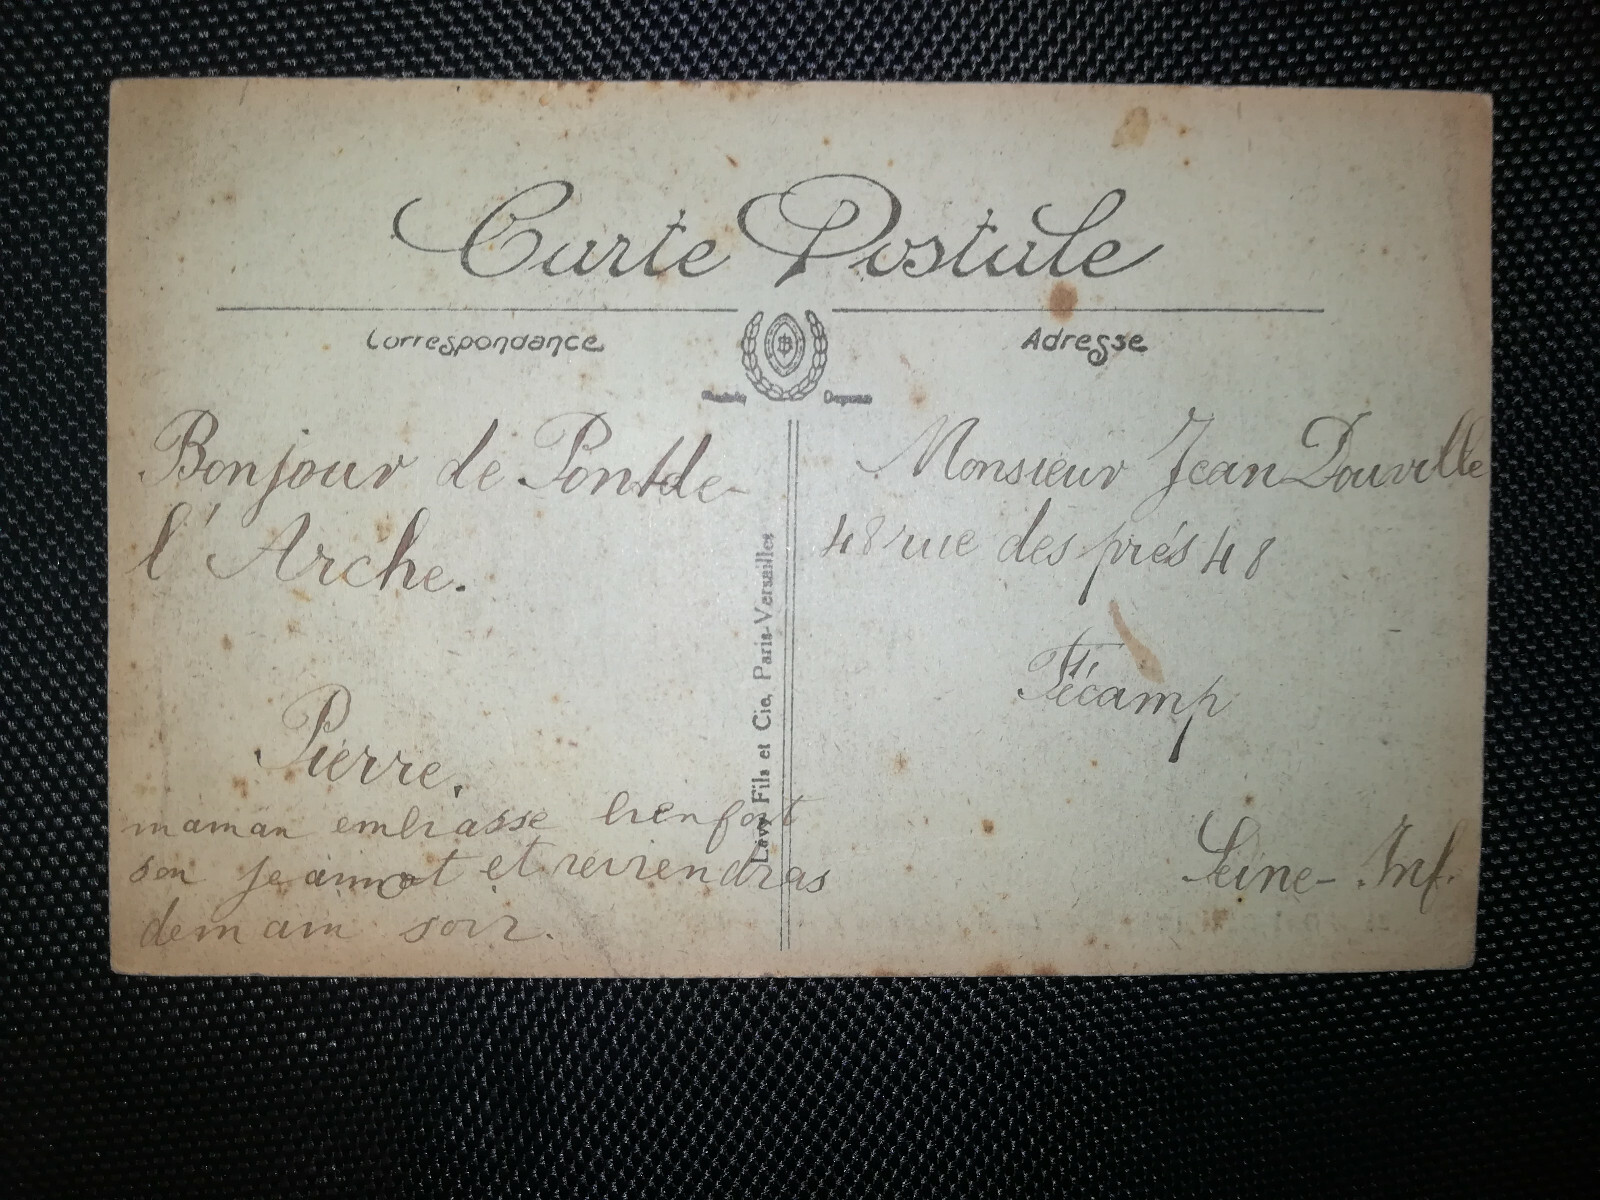 Carte Postale
Correspondance
Adresse
Modèle Déposé
Bonjour de Pont de
l'Arche.
Pierre.
maman embrasse bienfort
son jeannot et reviendras
demain soir.
Lévy Fils et Cie, Paris-Versailles
Monsieur Jean Douville
48 rue des prés 48
Fécamp
Seine-Inf.